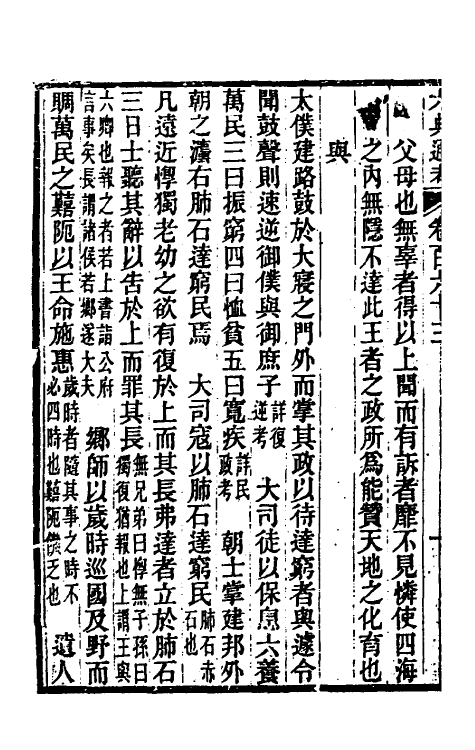 六典通考 卷百六十三
父母也無辜者得以上聞而有訴者靡不見憐使四海
之內無隱不達此王者之政所為能贊天地之化育也
與
太僕建路鼓於大寢之門外而掌其政以待達窮者與遽令
聞鼓聲則速逆御僕與御庶子詳復逆考 大司徒以保息六養
萬民三曰振窮四曰恤貧五曰寬疾詳民政考 朝士掌建邦外
朝之灋右肺石達窮民焉 大司寇以肺石達窮民肺石赤石也
凡遠近惸獨老幼之欲有復於上而其長弗達者立於肺石
三日士聽其辭以告於上而罪其長無兄弟曰惸無子孫曰獨復猶報也上謂王與
六卿也報之者若上書詣公府言事矣長謂諸侯若鄉遂大夫 鄉師以歲時巡國及野而
賙萬民之囏阨以王命施惠歲時者隨其事之時不必四時也囏阨饑乏也 遺人